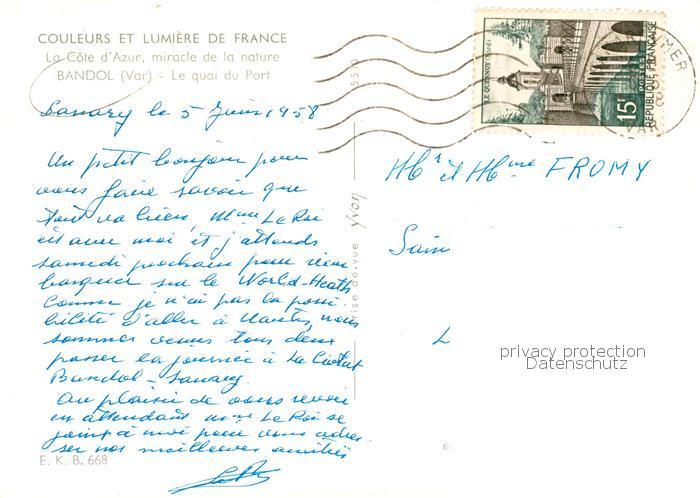 COULEURS ET LUMIÈRE DE FRANCE
La Côte d'Azur, miracle de la nature
BANDOL (Var) - Le quai du Port
Sanary le 5 Juin 1958
Un petit bonjour pour
vous faire savoir que
tout va bien, Mme Le Roi
est avec moi et j'attends
samedi prochain pour rem
barquer sur le World-Heath
Comme je n'ai pas la possi
bilité d'aller à Nantes, nous
sommes venus tous deux
passer la journée à La Ciotat
Bandol - Sanary.
Au plaisir de vous revoir
en attendant Mme Le Roi se
joint à moi pour vous adres
ser nos meilleures amitiés
E. K. B. 668
5510
Yvon
prise de vue
LE QUESNOY (Nord)
15F
POSTES
RÉPUBLIQUE FRANÇAISE
MER
Mr et Mme FROMY
Sain
L
privacy protection
Datenschutz